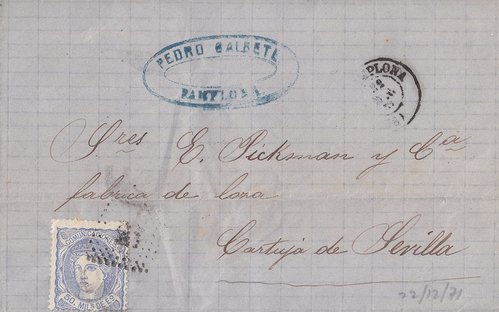 PEDRO GALBETE
PAMPLONA
PAMPLONA
22
Sres E. Pickman y Ca
fabrica de loza
Cartuja de Sevilla
COMUNICACIONES
50 MILS DE ES
22/12/71